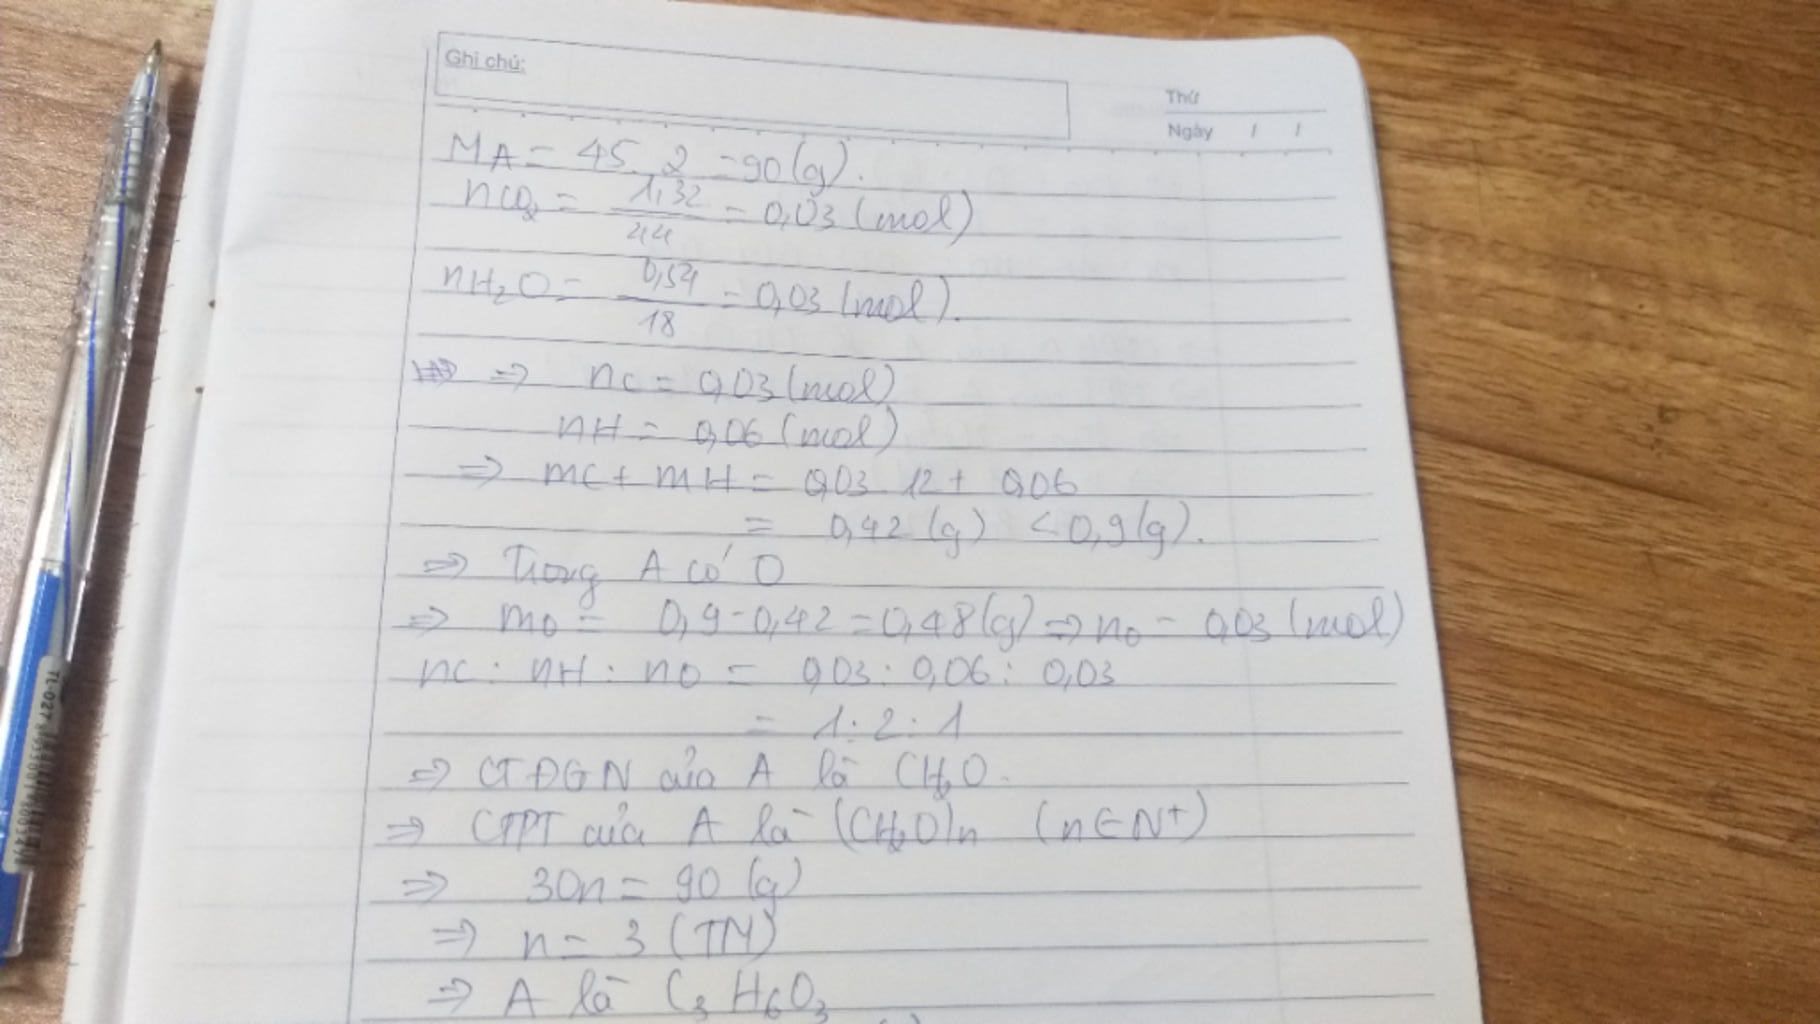 Ghi chú:
Thứ
Ngày / /
MA = 45.2 = 90 (g).
nCO2 = 1,32/44 = 0,03 (mol)
nH2O = 0,54/18 = 0,03 (mol).
=> nC = 0,03 (mol)
nH = 0,06 (mol)
=> mC + mH = 0,03.12 + 0,06
= 0,42 (g) < 0,9 (g).
=> Trong A có O
=> mO = 0,9 - 0,42 = 0,48 (g) => nO = 0,03 (mol)
nC : nH : nO = 0,03 : 0,06 : 0,03
= 1 : 2 : 1
=> CTĐGN của A là CH2O.
=> CTPT của A là (CH2O)n (n ∈ N+)
=> 30n = 90 (g)
=> n = 3 (TM)
=> A là C3H6O3
TL-027